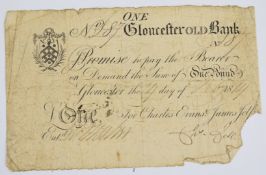 ONE
No Gloucester OLD Bank
I Promise to pay the Bearer
on Demand the Sum of One Pound
Gloucester the day of
One For Charles Evans James Jelf
Entd